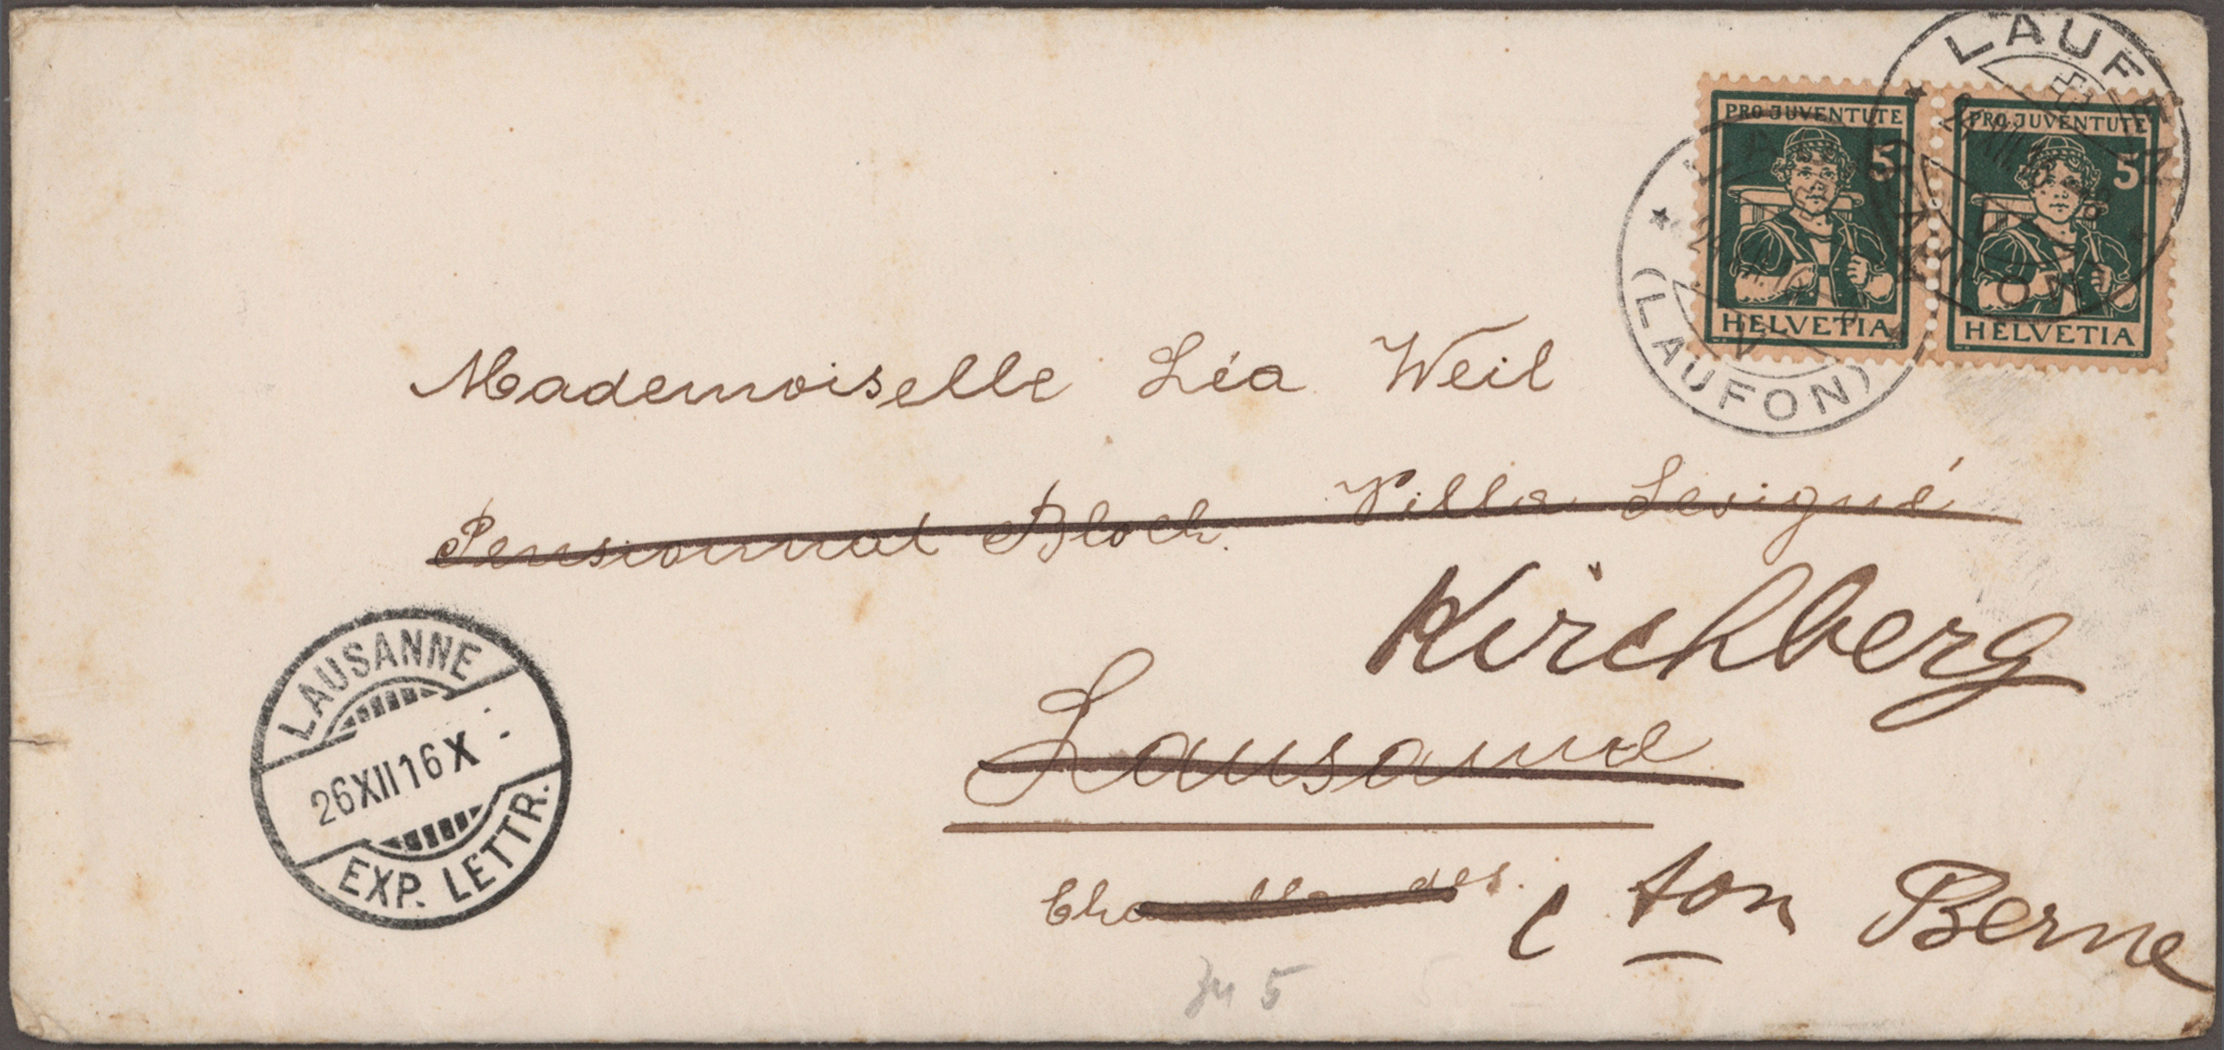 LAUFEN
(LAUFON)
PRO JUVENTUTE
5
HELVETIA
PRO JUVENTUTE
5
HELVETIA
LAUFEN
(LAUFON)
Mademoiselle Léa Weil
Pensionnat Bloch. Villa Sévigné
Kirchberg
Lausanne
c ton Berne
LAUSANNE
26 XII 16 X
EXP. LETTR.
5